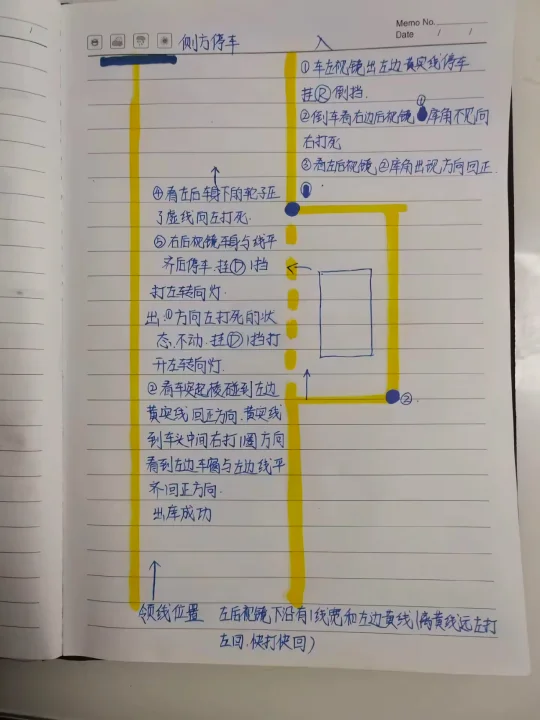 Memo No.
Date / /
侧方停车
入
①车左视镜出左边黄实线停车
挂Ⓡ倒挡.
②倒车看右边后视镜①库角不见向
右打死
③看左后视镜②库角出现方向回正.
④看左后车身下的轮子压
了虚线向左打死.
⑤右后视镜车身与线平
齐后停车.挂Ⓓ1挡
打左转向灯.
出:①方向左打死的状
态,不动.挂Ⓓ1挡打
开左转向灯.
②看车突起棱碰到左边
黄实线回正方向.黄实线
到车头中间右打1圈方向
看到左边车窗与左边线平
齐回正方向.
出库成功
②.
领线位置 左后视镜下沿有1线宽和左边黄线(离黄线远左打
左回.快打快回)